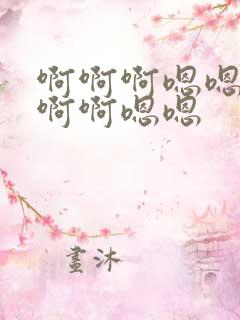 啊啊啊嗯嗯
啊啊嗯嗯
畫沐